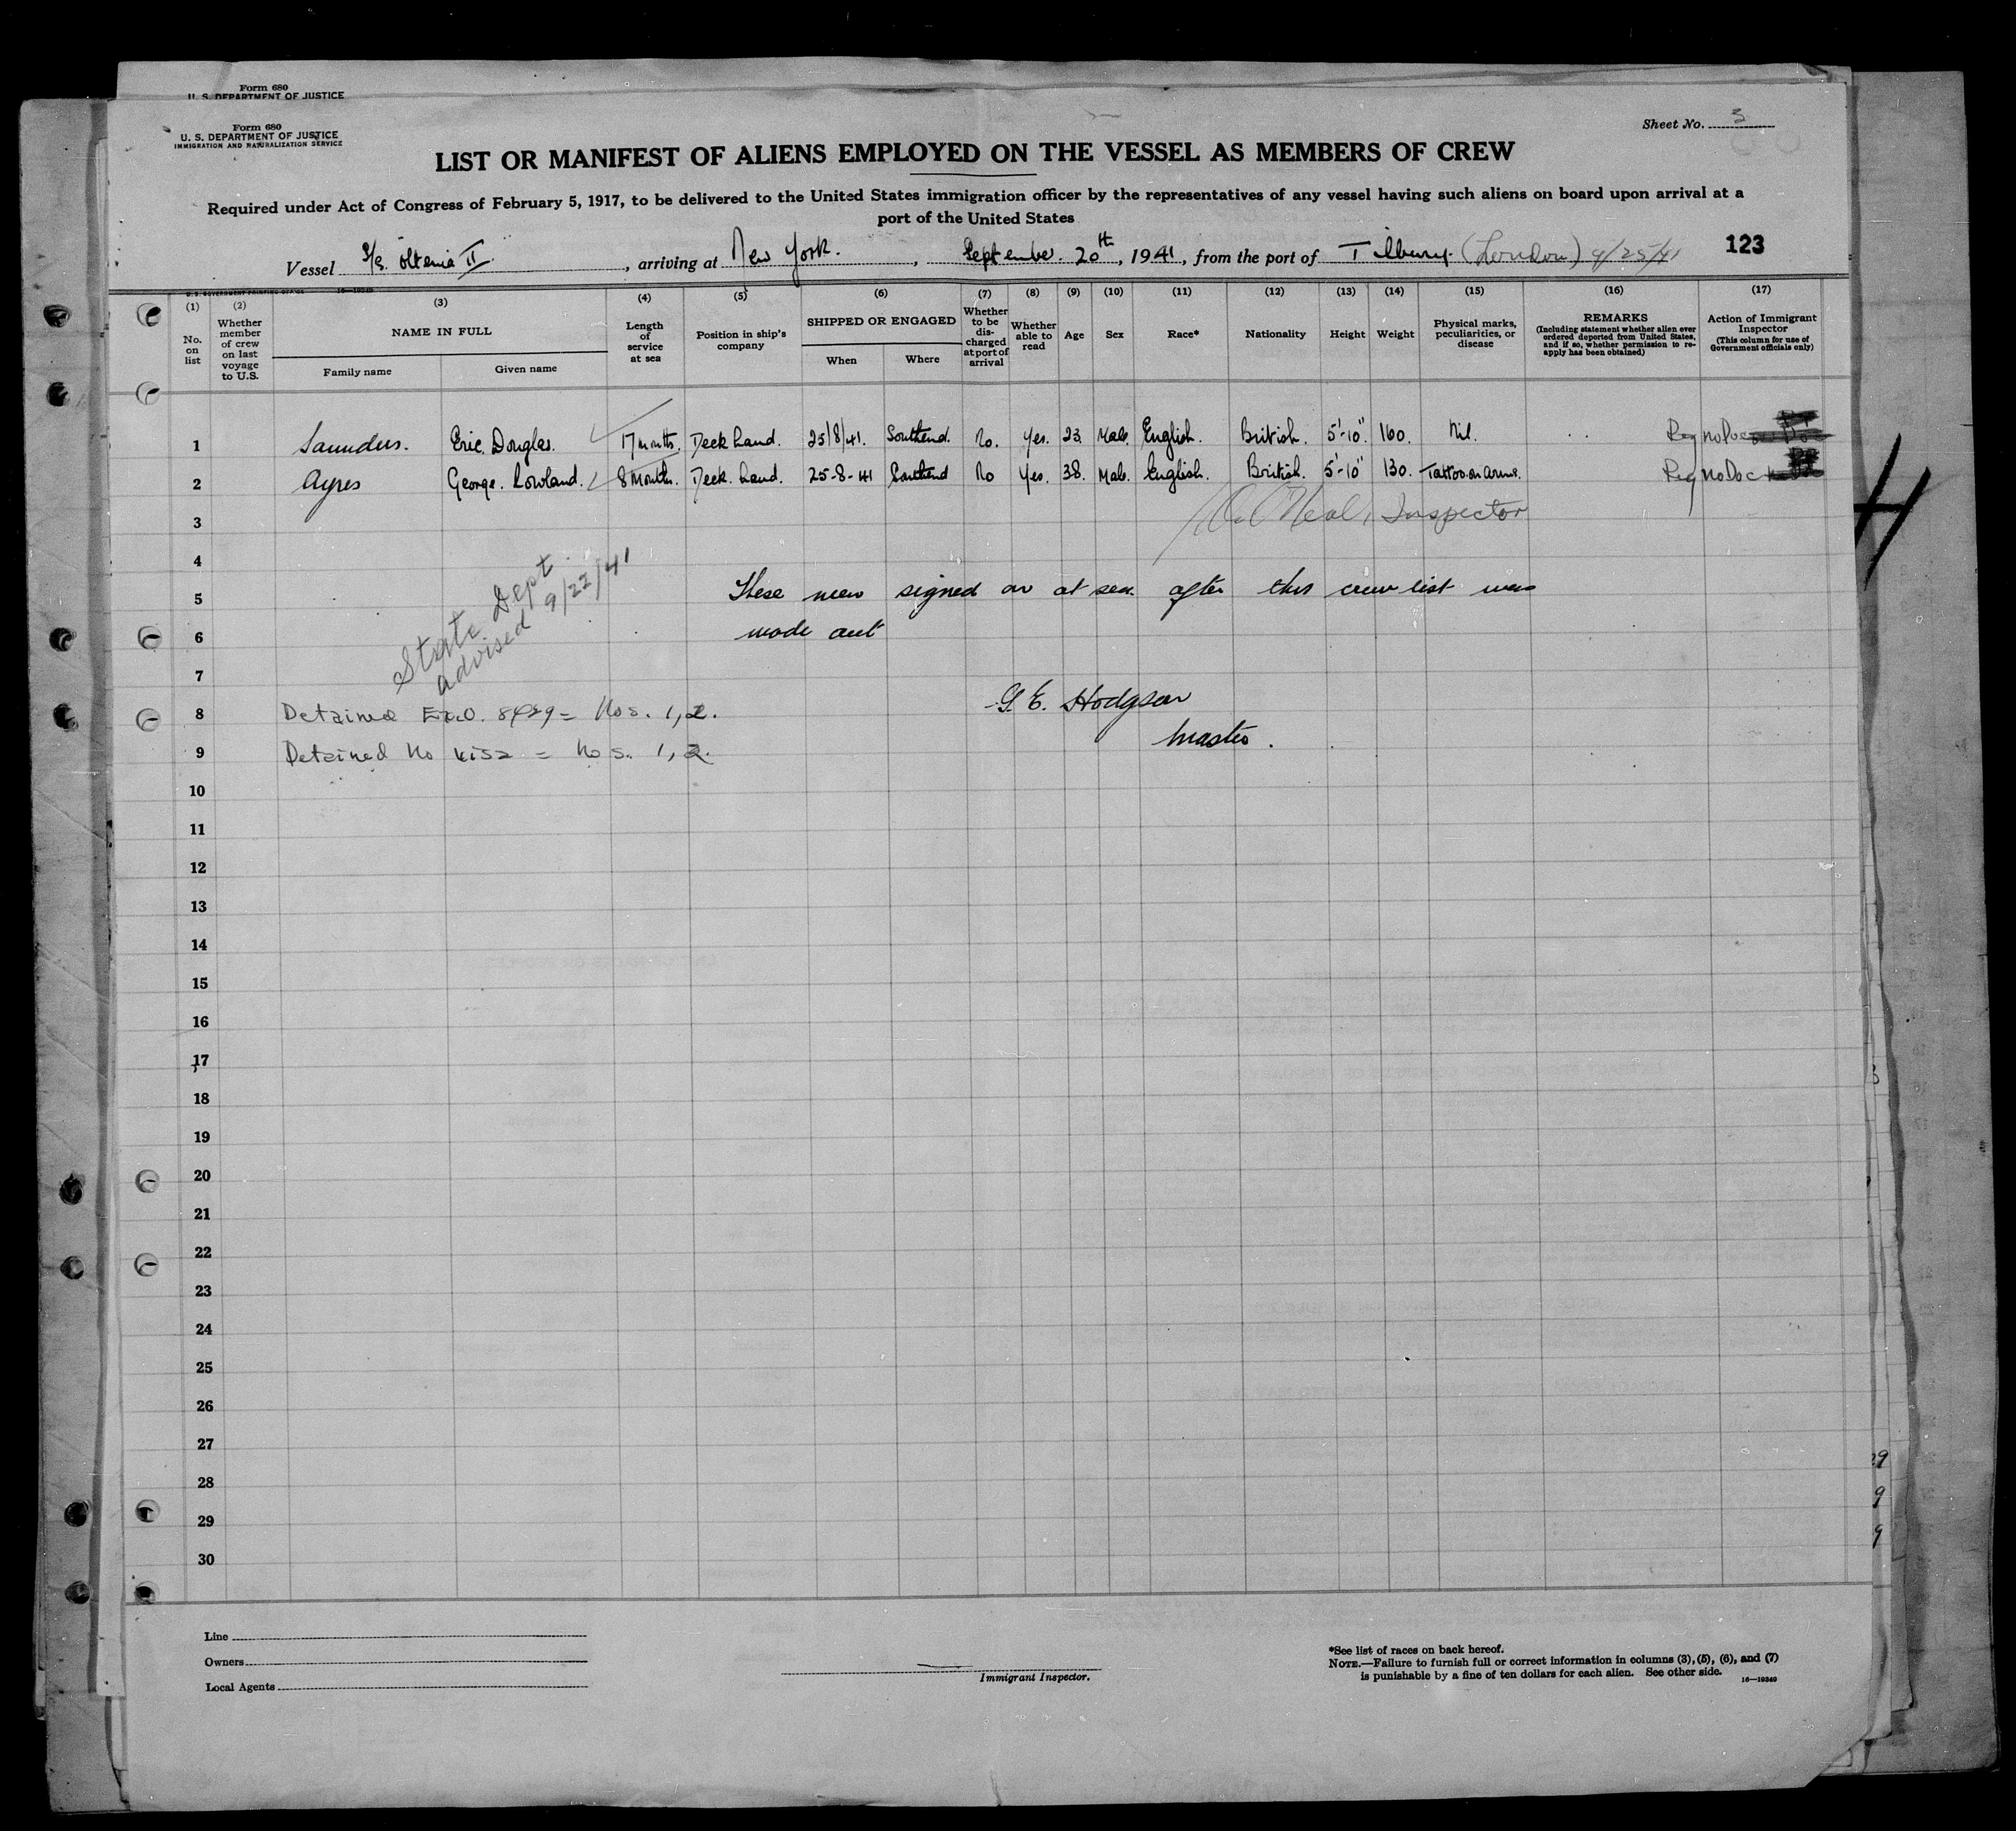 Form 680
U. S. DEPARTMENT OF JUSTICE
Form 680
U. S. DEPARTMENT OF JUSTICE
IMMIGRATION AND NATURALIZATION SERVICE
Sheet No. 3
LIST OR MANIFEST OF ALIENS EMPLOYED ON THE VESSEL AS MEMBERS OF CREW
Required under Act of Congress of February 5, 1917, to be delivered to the United States immigration officer by the representatives of any vessel having such aliens on board upon arrival at a
port of the United States
Vessel S/S. Oltenia II, arriving at New York., September. 20th, 1941, from the port of Tilbury. (London) 9/25/41 123
U. S. GOVERNMENT PRINTING OFFICE 16—19349
(1) No. on list
(2) Whether member of crew on last voyage to U.S.
(3) NAME IN FULL
Family name Given name
(4) Length of service at sea
(5) Position in ship's company
(6) SHIPPED OR ENGAGED
When Where
(7) Whether to be discharged at port of arrival
(8) Whether able to read
(9) Age
(10) Sex
(11) Race*
(12) Nationality
(13) Height
(14) Weight
(15) Physical marks, peculiarities, or disease
(16) REMARKS (Including statement whether alien ever ordered deported from United States, and if so, whether permission to reapply has been obtained)
(17) Action of Immigrant Inspector (This column for use of Government officials only)
1 Saunders. Eric. Douglas. 17 months. Deck hand. 25/8/41. Southend. No. Yes. 23. Male. English. British. 5'-10" 160. Nil. Reg no Doc
2 Ayres George. Rowland. 8 Months. Deck. hand. 25-8-41 Southend No Yes. 38. Male. English. British. 5'-10" 130. Tattoo on arms. Reg no Doc
3 O'Neal, Inspector
4
State Dept
advised 9/22/41
5 These men signed on at sea after this crew list was
6 made out
7
G. E. Hodgson
8 Detained Ex.O. 8429 = Nos. 1, 2.
Master.
9 Detained No visa = Nos. 1, 2.
10
11
12
13
14
15
16
17
18
19
20
21
22
23
24
25
26
27
28
29
30
Line
Owners
Local Agents
Immigrant Inspector.
*See list of races on back hereof.
NOTE.—Failure to furnish full or correct information in columns (3), (5), (6), and (7)
is punishable by a fine of ten dollars for each alien. See other side.
16—19349